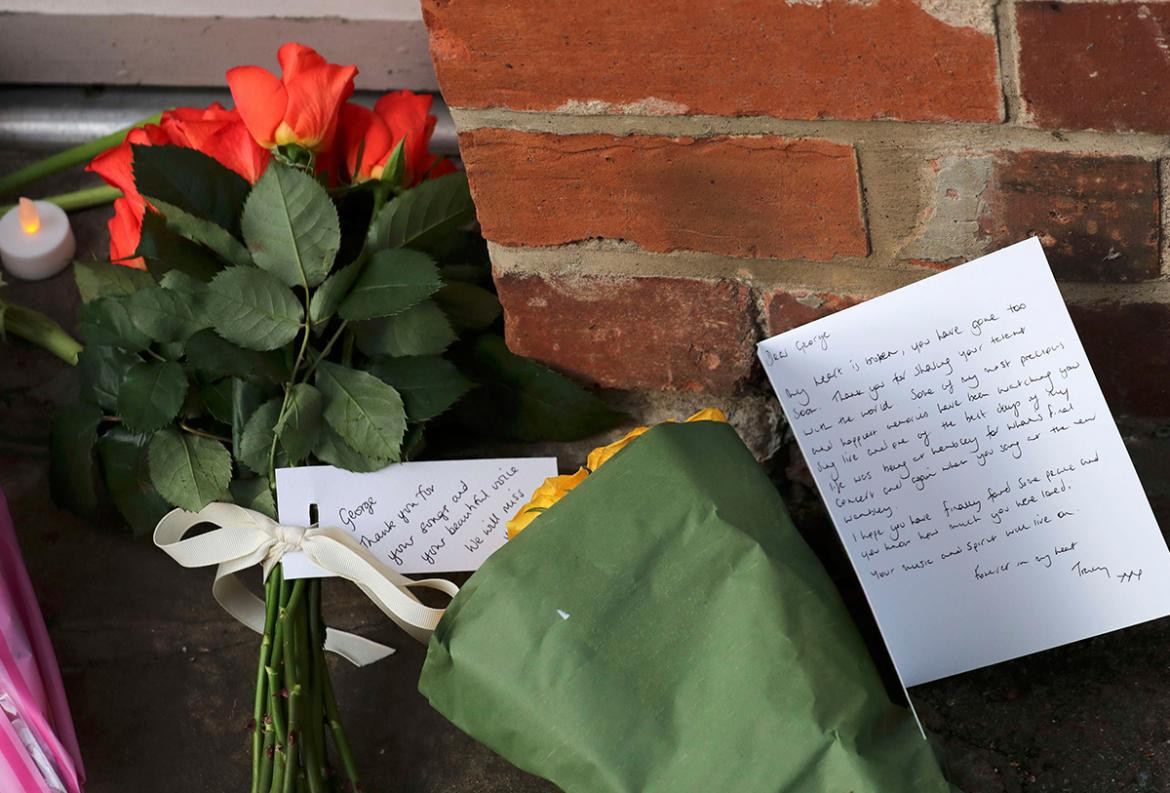 George
Thank you for
your songs and
your beautiful voice
We will miss
Dear George
My heart is broken, you have gone too
soon. Thank you for sharing your talent
with the world. Some of my most precious
and happiest memories have been watching you
sing live and one of the best days of my
life was being at Wembley for Wham's final
concert and again when you sang at the new
Wembley.
I hope you have finally found some peace and
you know how much you were loved.
Your music and spirit will live on.
Forever in my heart
Tracey xxx